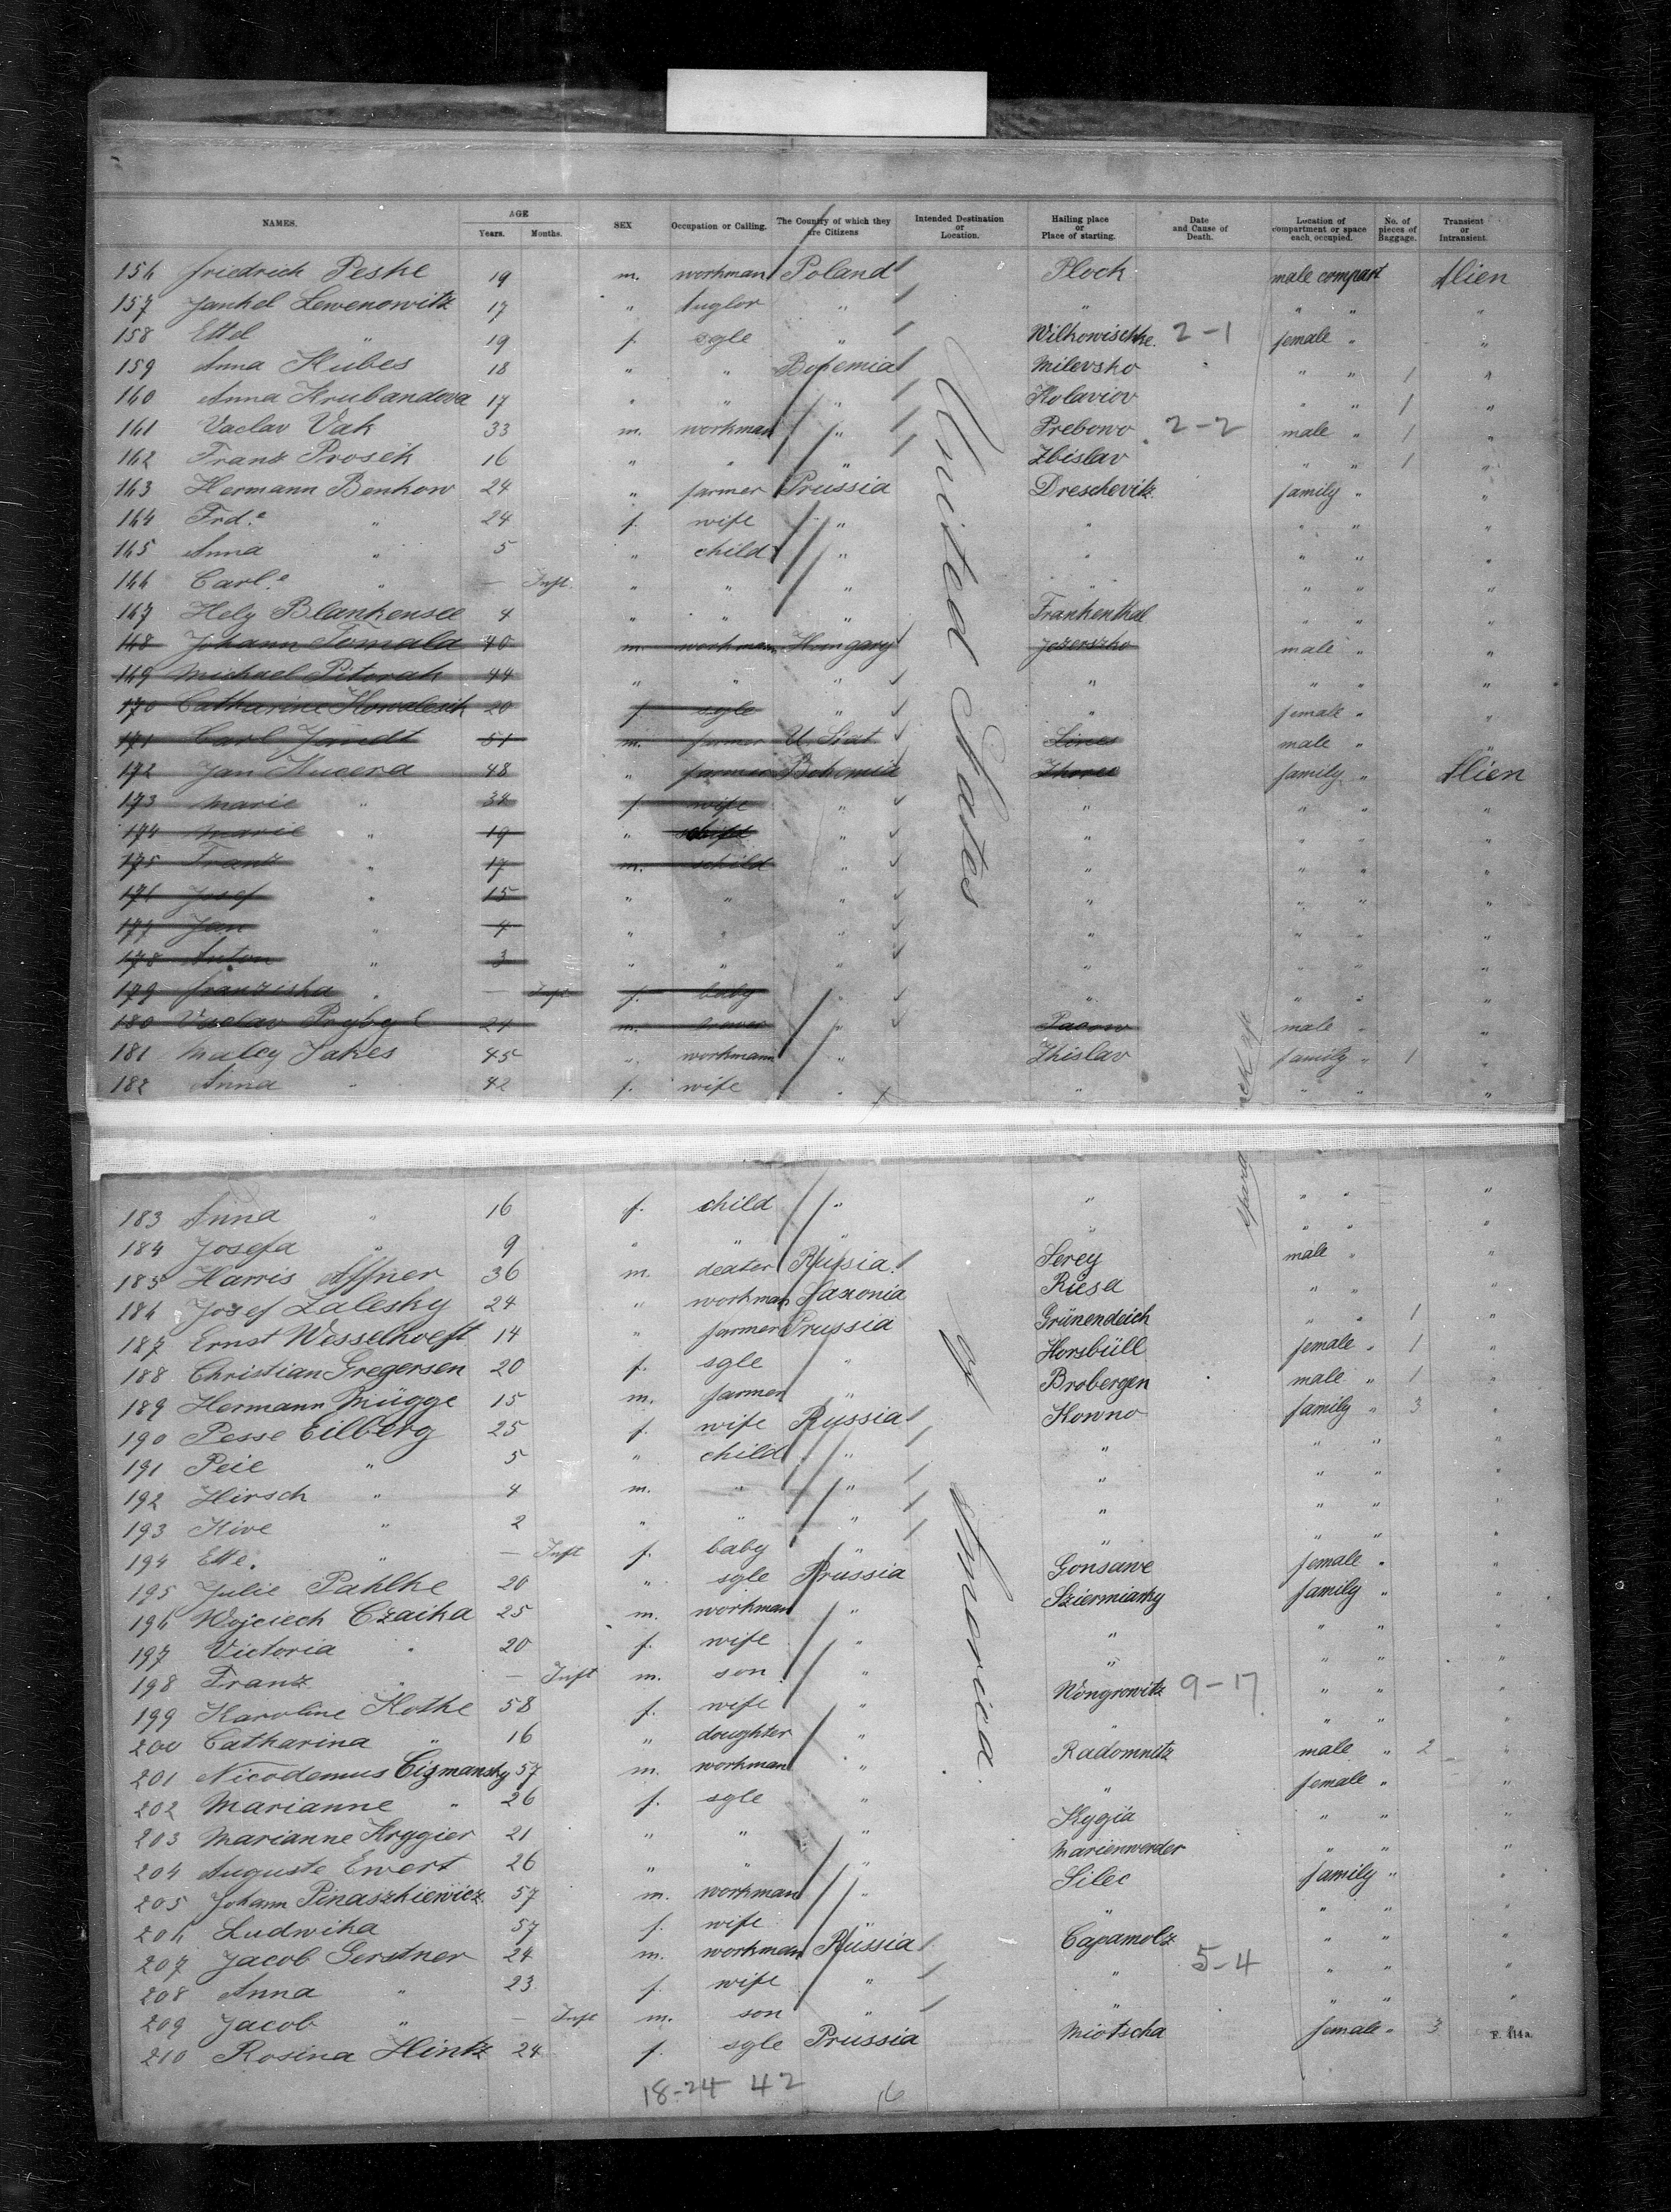 NAMES. AGE Years. Months. SEX Occupation or Calling. The Country of which they are Citizens Intended Destination or Location. Hailing place or Place of starting. Date and Cause of Death. Location of compartment or space each occupied. No. of pieces of Baggage. Transient or Intransient.
156 Friedrich Peske 19 m. workman Poland Plock male compart Alien
157 Jankel Lewenowitz 17 " " " " " "
158 Ettel " 19 f. sgle " Wilkowischke. 2-1 female " "
159 Anna Kubes 18 " " Bohemia Milevsko " " 1 "
160 Anna Hrubandova 17 " " " Kolaviov " " 1 "
161 Vaclav Vak 33 m. workman " Prebowo 2-2 male " 1 "
162 Franz Prosek 16 " " " Zbislav " " 1 "
163 Hermann Benkow 24 " farmer Prussia Dreschevitz family " "
164 Frd.e " 24 f. wife " " " " "
165 Anna " 5 " child " " " " "
166 Carl.e " — Inft. " " " " " " "
167 Hely Blankensee 4 " " " Frankenthal " " "
168 Johann Tomala 40 m. workman Hungary Jezerszko male " "
169 Michael Pitorak 44 " " " " " " "
170 Catharine Kowalesik 20 f sgle " " female " "
171 Carl Jandt 51 m. farmer U. Stat. male " "
172 Jan Kucera 48 " farmer Bohemia Zhorec family " Alien
173 Marie " 34 f. wife " " " " "
174 Marie " 19 " " " " " "
175 Franz " 17 m. child " " " " "
176 Josef " 15 " " " " " " "
177 Jan " 4 " " " " " " "
178 Anton " 3 " " " " " " "
179 Franziska " — Inft f. baby " " " " "
180 Vaclav Prybyl 21 m. " Pacow male " "
181 Maley Jakes 45 " workmann " Zhislav family " 1 "
182 Anna " 42 f. wife " " " " "
183 Anna " 16 f. child " " " " "
184 Josefa " 9 " " " " " " "
185 Harris Affner 36 m. dealer Russia Serey male " "
186 Josef Zalesky 24 " workman Saxonia Riesa " " "
187 Ernst Wesselhoeft 14 " farmer Prussia Grünendeich " " 1 "
188 Christian Gregersen 20 f. sgle " Horsbüll female " 1 "
189 Hermann Brügge 15 m. farmer " Brobergen male " 1 "
190 Pesse Eilberg 25 f. wife Russia Kowno family " 3 "
191 Peie " 5 " child " " " " "
192 Hirsch " 4 m. " " " " " "
193 Kive " 2 " " " " " " "
194 Ette. " — Inft f. baby " " " " "
195 Julie Pahlke 20 " sgle Prussia Gonsawe female " "
196 Wojciech Czaika 25 m. workman " Sziermiamy family " "
197 Victoria " 20 f. wife " " " " "
198 Franz " — Inft m. son " " " " "
199 Karoline Kothe 58 f. wife " Wongrowitz 9-17 " " "
200 Catharina " 16 " doughter " " " " "
201 Nicodemus Cizmansky 57 m. workman " Radomnitz male " 2 "
202 Marianne " 26 f. sgle " " female " "
203 Marianne Kryger 21 " " " " " "
204 Auguste Ewert 26 " " " Marienwerder " " "
205 Johann Pinaszkiewicz 57 m. workman " Silec family " "
206 Ludwika 57 f. wife " " " " "
207 Jacob Gerstner 24 m. workman Russia Capamolz 5-4 " " "
208 Anna " 23 f. wife " " " " "
209 Jacob " — Inft m. son " " " " "
210 Rosina Hintz 24 f. sgle Prussia Miotscha female " 3 "
United States of America.
F. 114a.
18-24 42 16